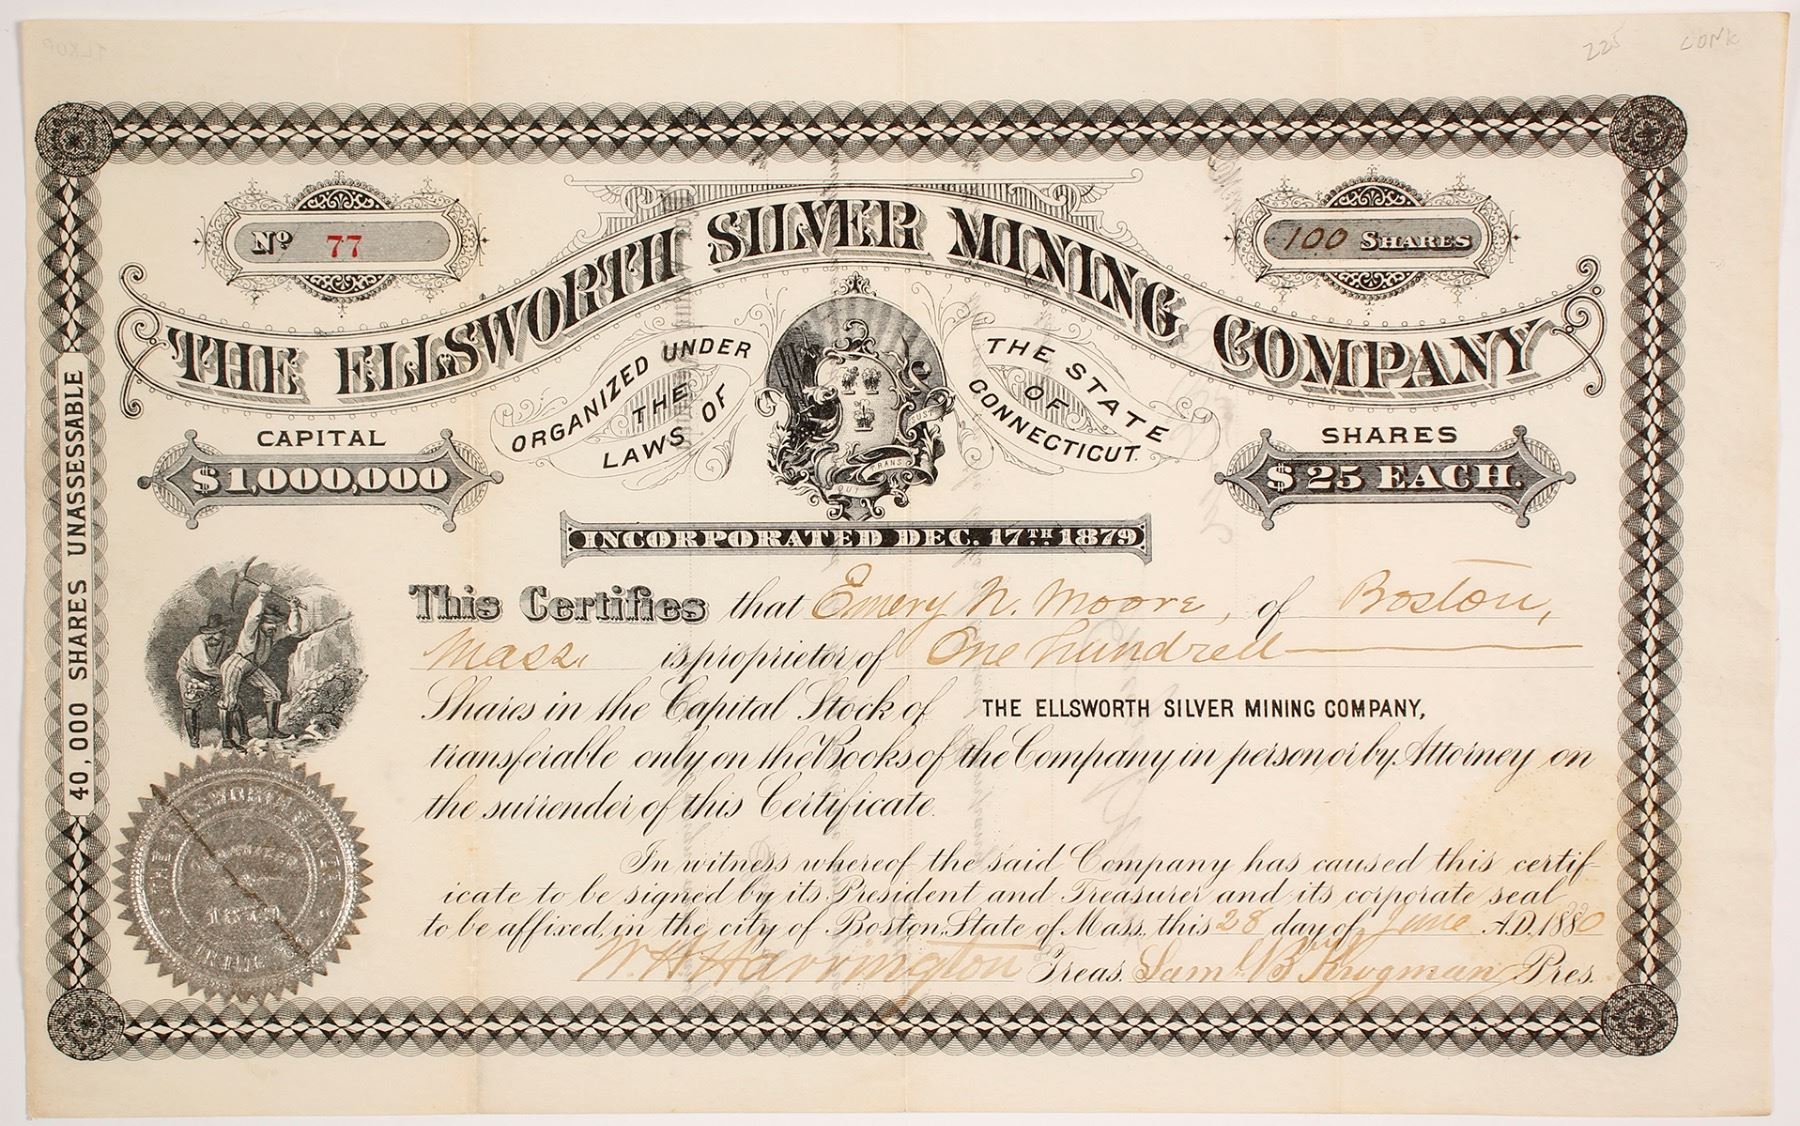 225 CONK
Nº 77
100 SHARES
THE ELLSWORTH SILVER MINING COMPANY
ORGANIZED UNDER THE LAWS OF
THE STATE OF CONNECTICUT.
QUI TRANS SUST
CAPITAL
$1,000,000
SHARES
$25 EACH.
INCORPORATED DEC. 17TH. 1879
40,000 SHARES UNASSESSABLE
This Certifies that Emery N. Moore, of Boston,
Mass. is proprietor of One hundred
Shares in the Capital Stock of THE ELLSWORTH SILVER MINING COMPANY,
transferable only on the Books of the Company in person or by Attorney on
the surrender of this Certificate.
In witness whereof the said Company has caused this certif-
icate to be signed by its President and Treasurer and its corporate seal
to be affixed, in the city of Boston, State of Mass. this 28 day of June A.D. 1880
W. H. Harrington Treas. Saml. B. Krogman Pres.
THE ELLSWORTH SILVER MINING
1879